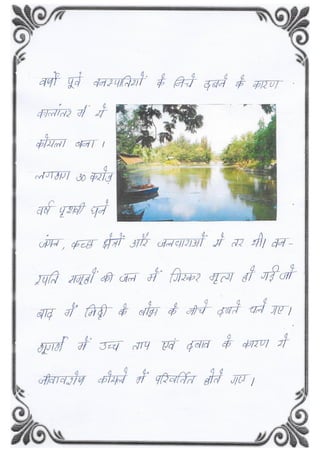 वर्षों पूर्व वनस्पतियों के निचे दबने के कारण
कालांतर में ये
कोयला बना ।
लगभग ३० करोड़
वर्ष पृथ्वी घने
जंगल, कच्छ क्षेत्रों और जलधाराओं से तर थी। वन-
स्पति समूहों को जल में गिरकर मृत्य हो गई जो
बाद में मिट्टी के बोझ के नीचे दबते चले गए ।
भूगर्भ में उच्च ताप एवं दबाव के कारण ये
जीवावशेष कोयले में परिवर्तित होते गए ।